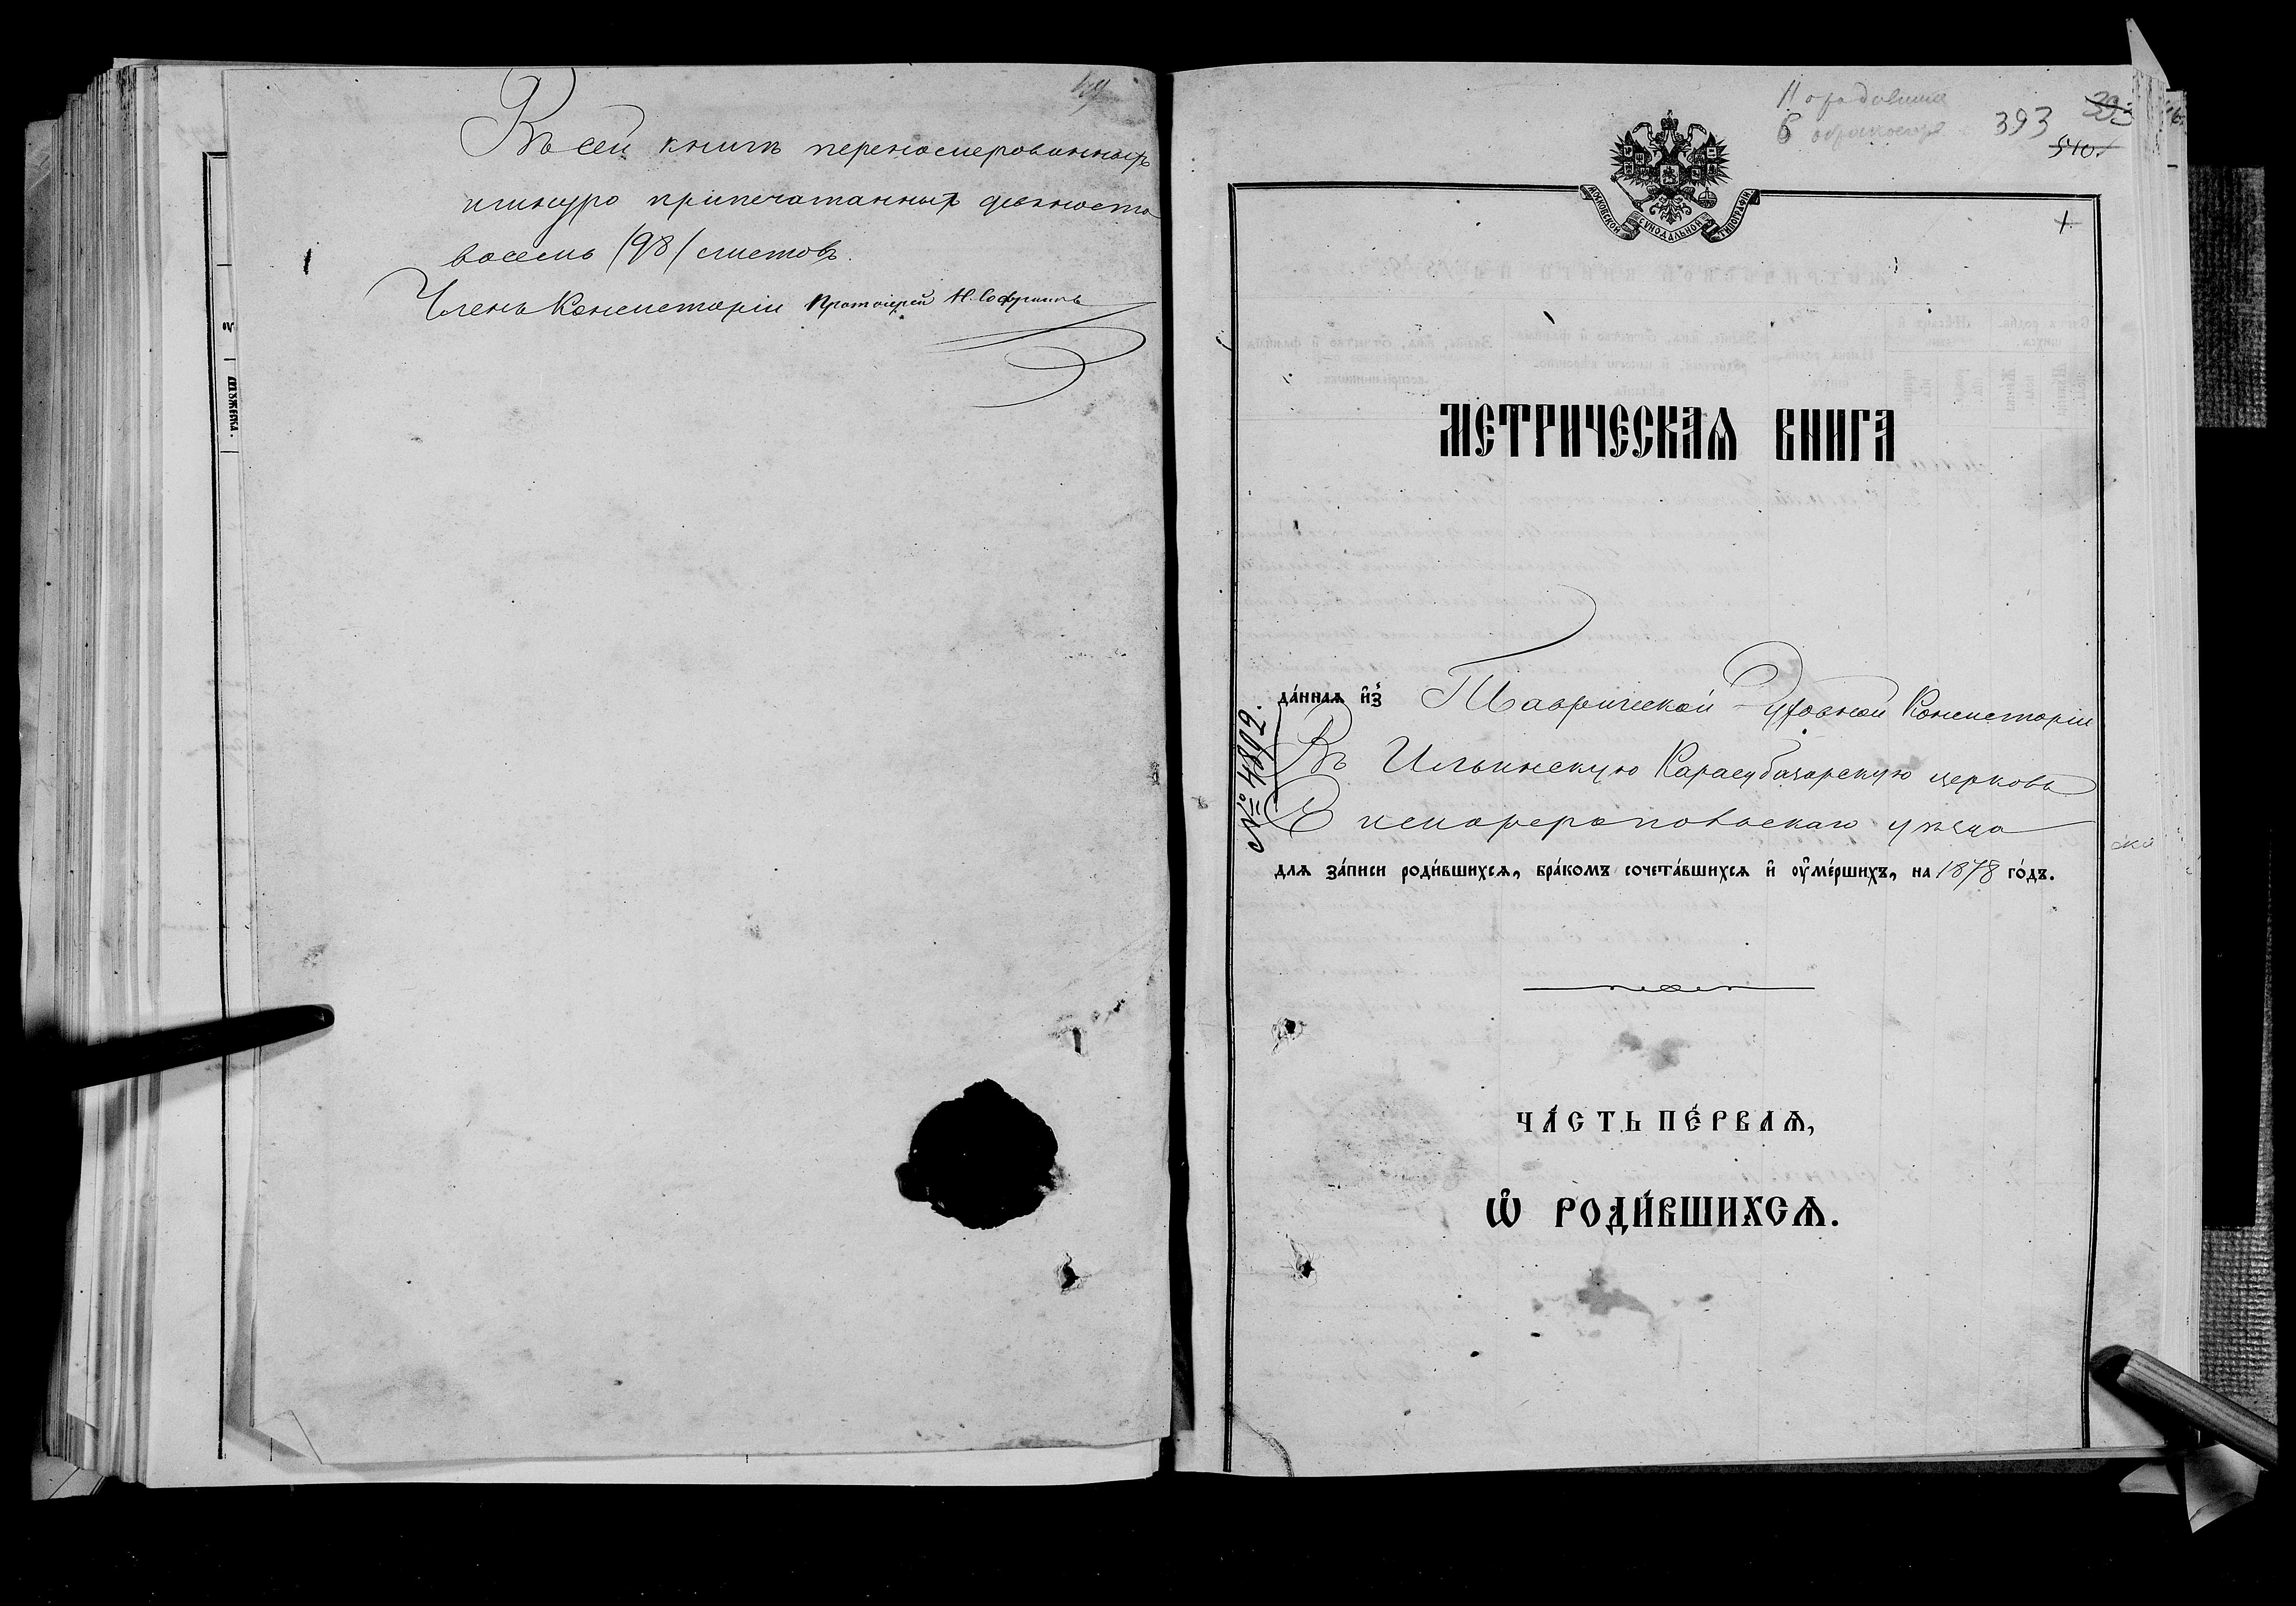 Въ сей книгѣ перенумерованныхъ
шнуро припечатанныхъ девяносто
восемь /98/ листовъ.
Членъ Консисторіи Протоіерей Н. Софроновъ
мѹжеска.
393
393
510.
1
МОСКОВСКОЙ СѴНОДАЛЬНОЙ ТИПОГРАФІИ
МЕТРИЧЕСКАѦ КНИГА
да́ннаѧ и҆з̾ Таврической Духовной Консисторіи
Въ Ильинскую Карасубазарскую церковь
Симферопольскаго уѣзда
№ 4892.
длѧ за́писи роди́вшихсѧ, бра́комъ сочета́вшихсѧ и҆ ᲂу҆ме́ршихъ, на 1878 го́дъ.
ЧА́СТЬ ПЕ́РВАѦ,
Ѽ РОДИ́ВШИХСѦ.